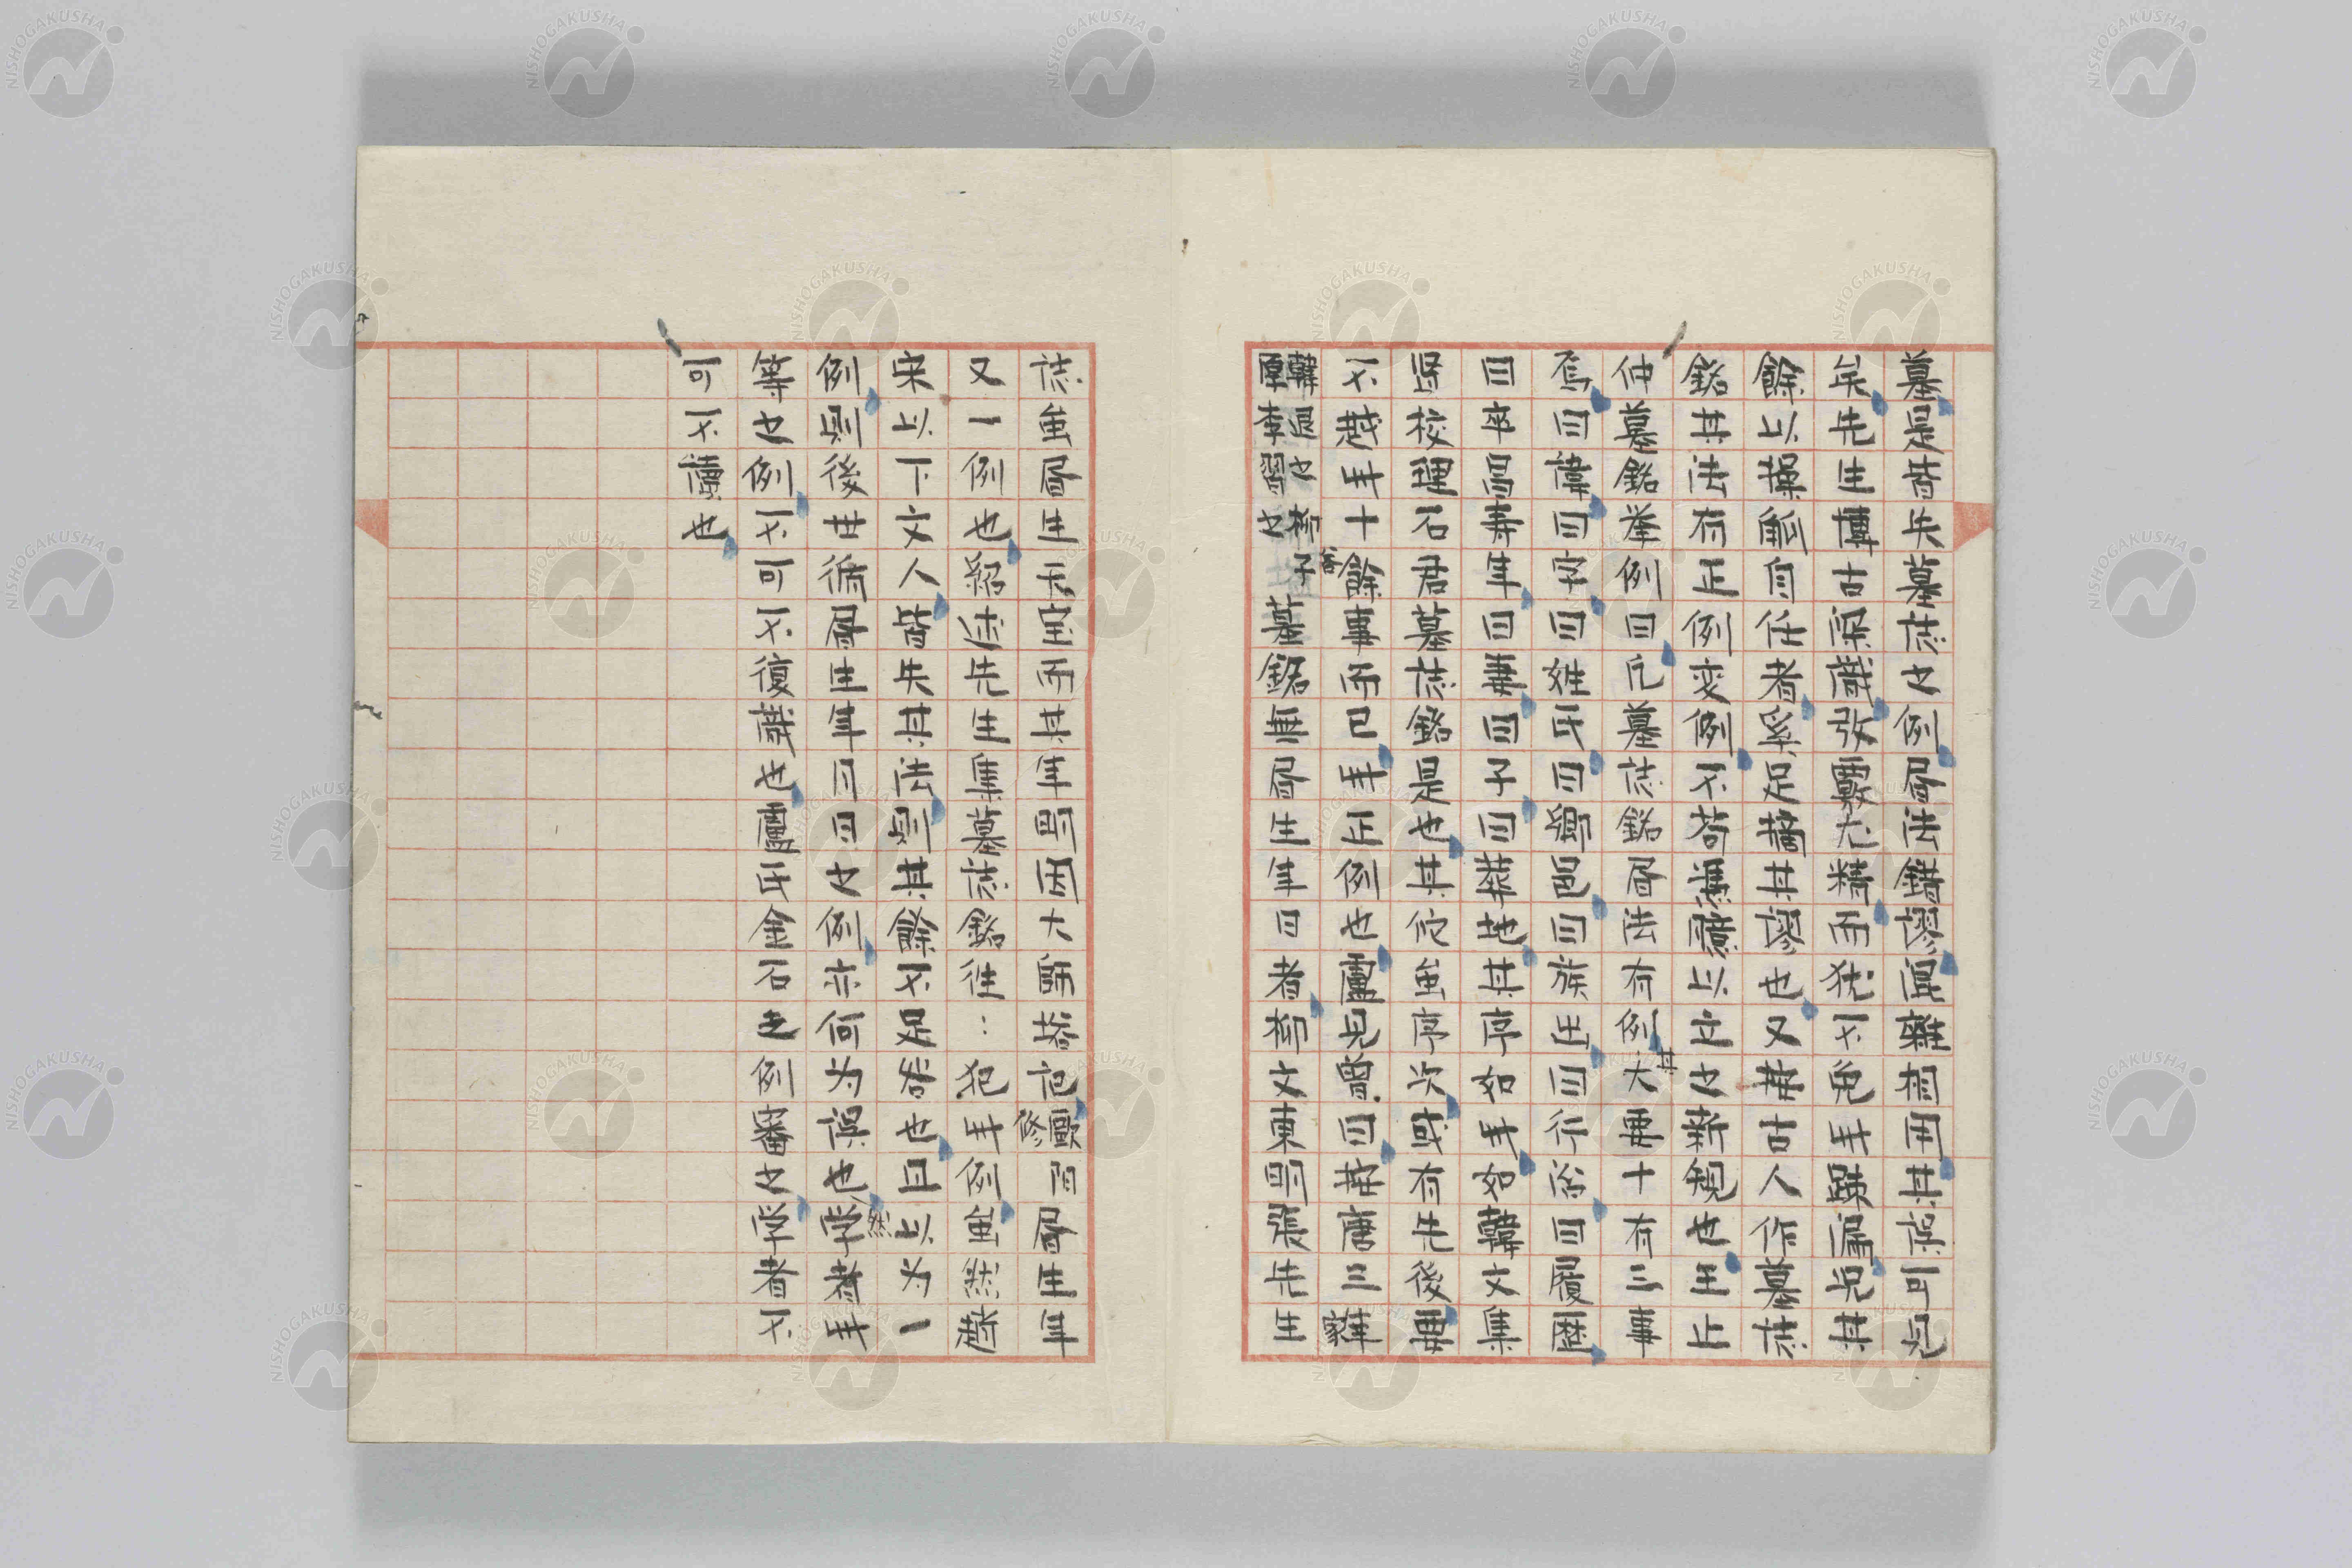 墓是皆失墓誌之例書法錯謬混雜相因其誤可見
矣先生博古深識攷覈尤精而猶不免此偏况其
餘以操觚自任者奚足其謬也又案古人作墓誌
銘其法有正例変例不若憑臆以立之新規也王止
仲墓銘挙例曰凡墓誌銘書法有例其大要十有三事
焉曰諱曰字曰姓氏曰鄉邑曰族出曰行治曰履歷
曰卒曰寿年曰妻曰子曰葬地其序如此如韓文集
賢校理石君墓誌銘是也其佗虽序次或有先後要
不越此十餘事而已此正例也盧見曾曰案唐三家
韓退之柳子厚李習之墓銘無書生年日者柳文東明張先生
誌虽書生天宝而其年明因大師塔記歐陽修書生年
又一例也紹述先生集墓誌銘往〻犯此例虽然趙
宋以下文人皆失其法則其餘不足咎也且以为一
例則後世循書生年月日之例亦何为誤也然学者此
等之例不可不復識也盧氏金石之例審之学者不
可不讀也